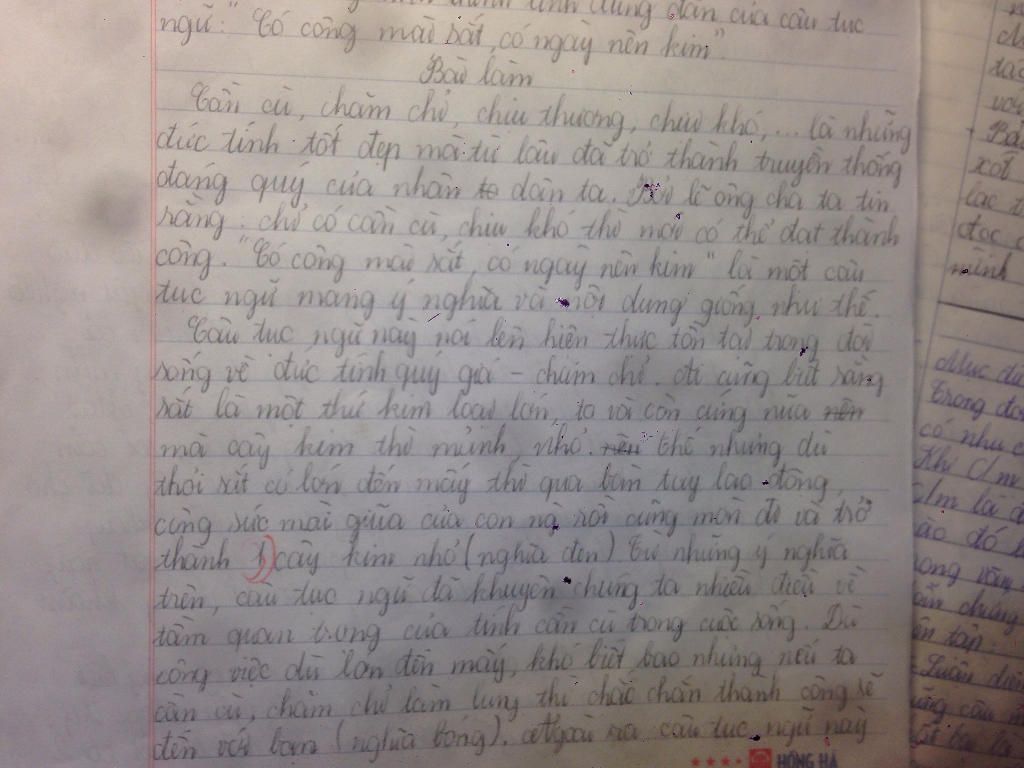 tính đúng đắn của câu tục
ngữ: "Có công mài sắt, có ngày nên kim".
Bài làm
Cần cù, chăm chỉ, chịu thương, chịu khó,... là những
đức tính tốt đẹp mà từ lâu đã trở thành truyền thống
đáng quý của nhân dân ta. Bởi lẽ ông cha ta tin
rằng: chỉ có cần cù, chịu khó thì mới có thể đạt thành
công. "Có công mài sắt, có ngày nên kim" là một câu
tục ngữ mang ý nghĩa và nội dung giống như thế.
Câu tục ngữ này nói lên hiện thực tồn tại trong đời
sống về đức tính quý giá - chăm chỉ. Ai cũng biết rằng
sắt là một thứ kim loại lớn, to và còn cứng nữa
mà cây kim thì mảnh, nhỏ. Thế nhưng dù
thỏi sắt có lớn đến mấy thì qua bàn tay lao động,
cùng sức mài giũa của con ng rồi cũng mòn đi và trở
thành 1 cây kim nhỏ (nghĩa đen) Từ những ý nghĩa
trên, câu tục ngữ đã khuyên chúng ta nhiều điều về
tầm quan trọng của tính cần cù trong cuộc sống. Dù
công việc dù lớn đến mấy, khó biết bao nhưng nếu ta
cần cù, chăm chỉ làm lụng thì chắc chắn thành công sẽ
đến với bạn (nghĩa bóng). Ngoài ra, câu tục ngữ này
HỒNG HÀ
xót
đọc
mình
Mục đí
Trong đo
có nhu c
Khi